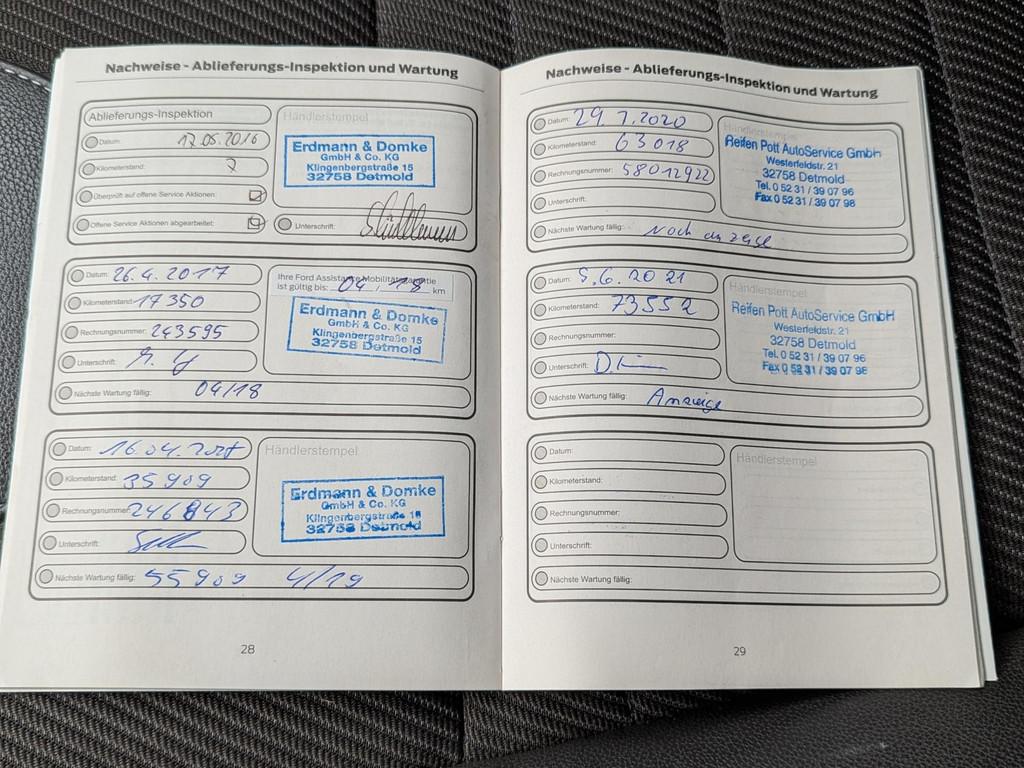 Nachweise - Ablieferungs-Inspektion und Wartung
Ablieferungs-Inspektion
Datum: 17.05.2016
Kilometerstand: 7
Überprüft auf offene Service Aktionen:
Offene Service Aktionen abgearbeitet:
Händlerstempel
Erdmann & Domke
GmbH & Co. KG
Klingenbergstraße 15
32758 Detmold
Unterschrift:
Datum: 26.4.2017
Kilometerstand: 17350
Rechnungsnummer: 243595
Unterschrift:
Nächste Wartung fällig: 04/18
Ihre Ford Assistance Mobilitätsgarantie
ist gültig bis: 04/18 km
Erdmann & Domke
GmbH & Co. KG
Klingenbergstraße 15
32758 Detmold
Datum: 16.04.
Kilometerstand: 35909
Rechnungsnummer: 246843
Unterschrift:
Nächste Wartung fällig: 55909 4/19
Händlerstempel
Erdmann & Domke
GmbH & Co. KG
Klingenbergstraße 15
32758 Detmold
28
Nachweise - Ablieferungs-Inspektion und Wartung
Datum: 29.7.2020
Kilometerstand: 63018
Rechnungsnummer: 58012922
Unterschrift:
Nächste Wartung fällig: Nach Anzeige
Händlerstempel
Reifen Pott AutoService GmbH
Westerfeldstr. 21
32758 Detmold
Tel. 0 52 31 / 39 07 96
Fax 0 52 31 / 39 07 98
Datum: 5.6.2021
Kilometerstand: 73552
Rechnungsnummer:
Unterschrift:
Nächste Wartung fällig: Anzeige
Händlerstempel
Reifen Pott AutoService GmbH
Westerfeldstr. 21
32758 Detmold
Tel. 0 52 31 / 39 07 96
Fax 0 52 31 / 39 07 98
Datum:
Kilometerstand:
Rechnungsnummer:
Unterschrift:
Nächste Wartung fällig:
Händlerstempel
29